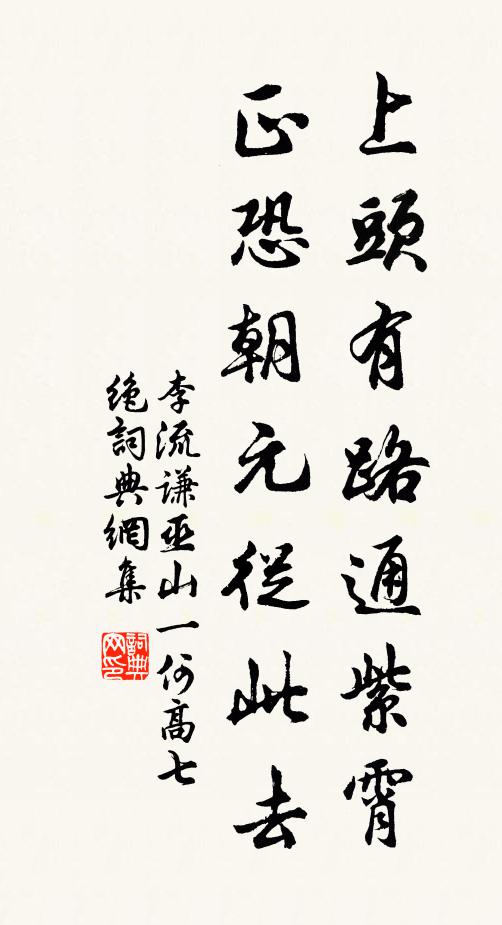 上頭有路通紫霄
正恐朝元從此去
李流謙巫山一何高七
絶詞典網集
詞典網印